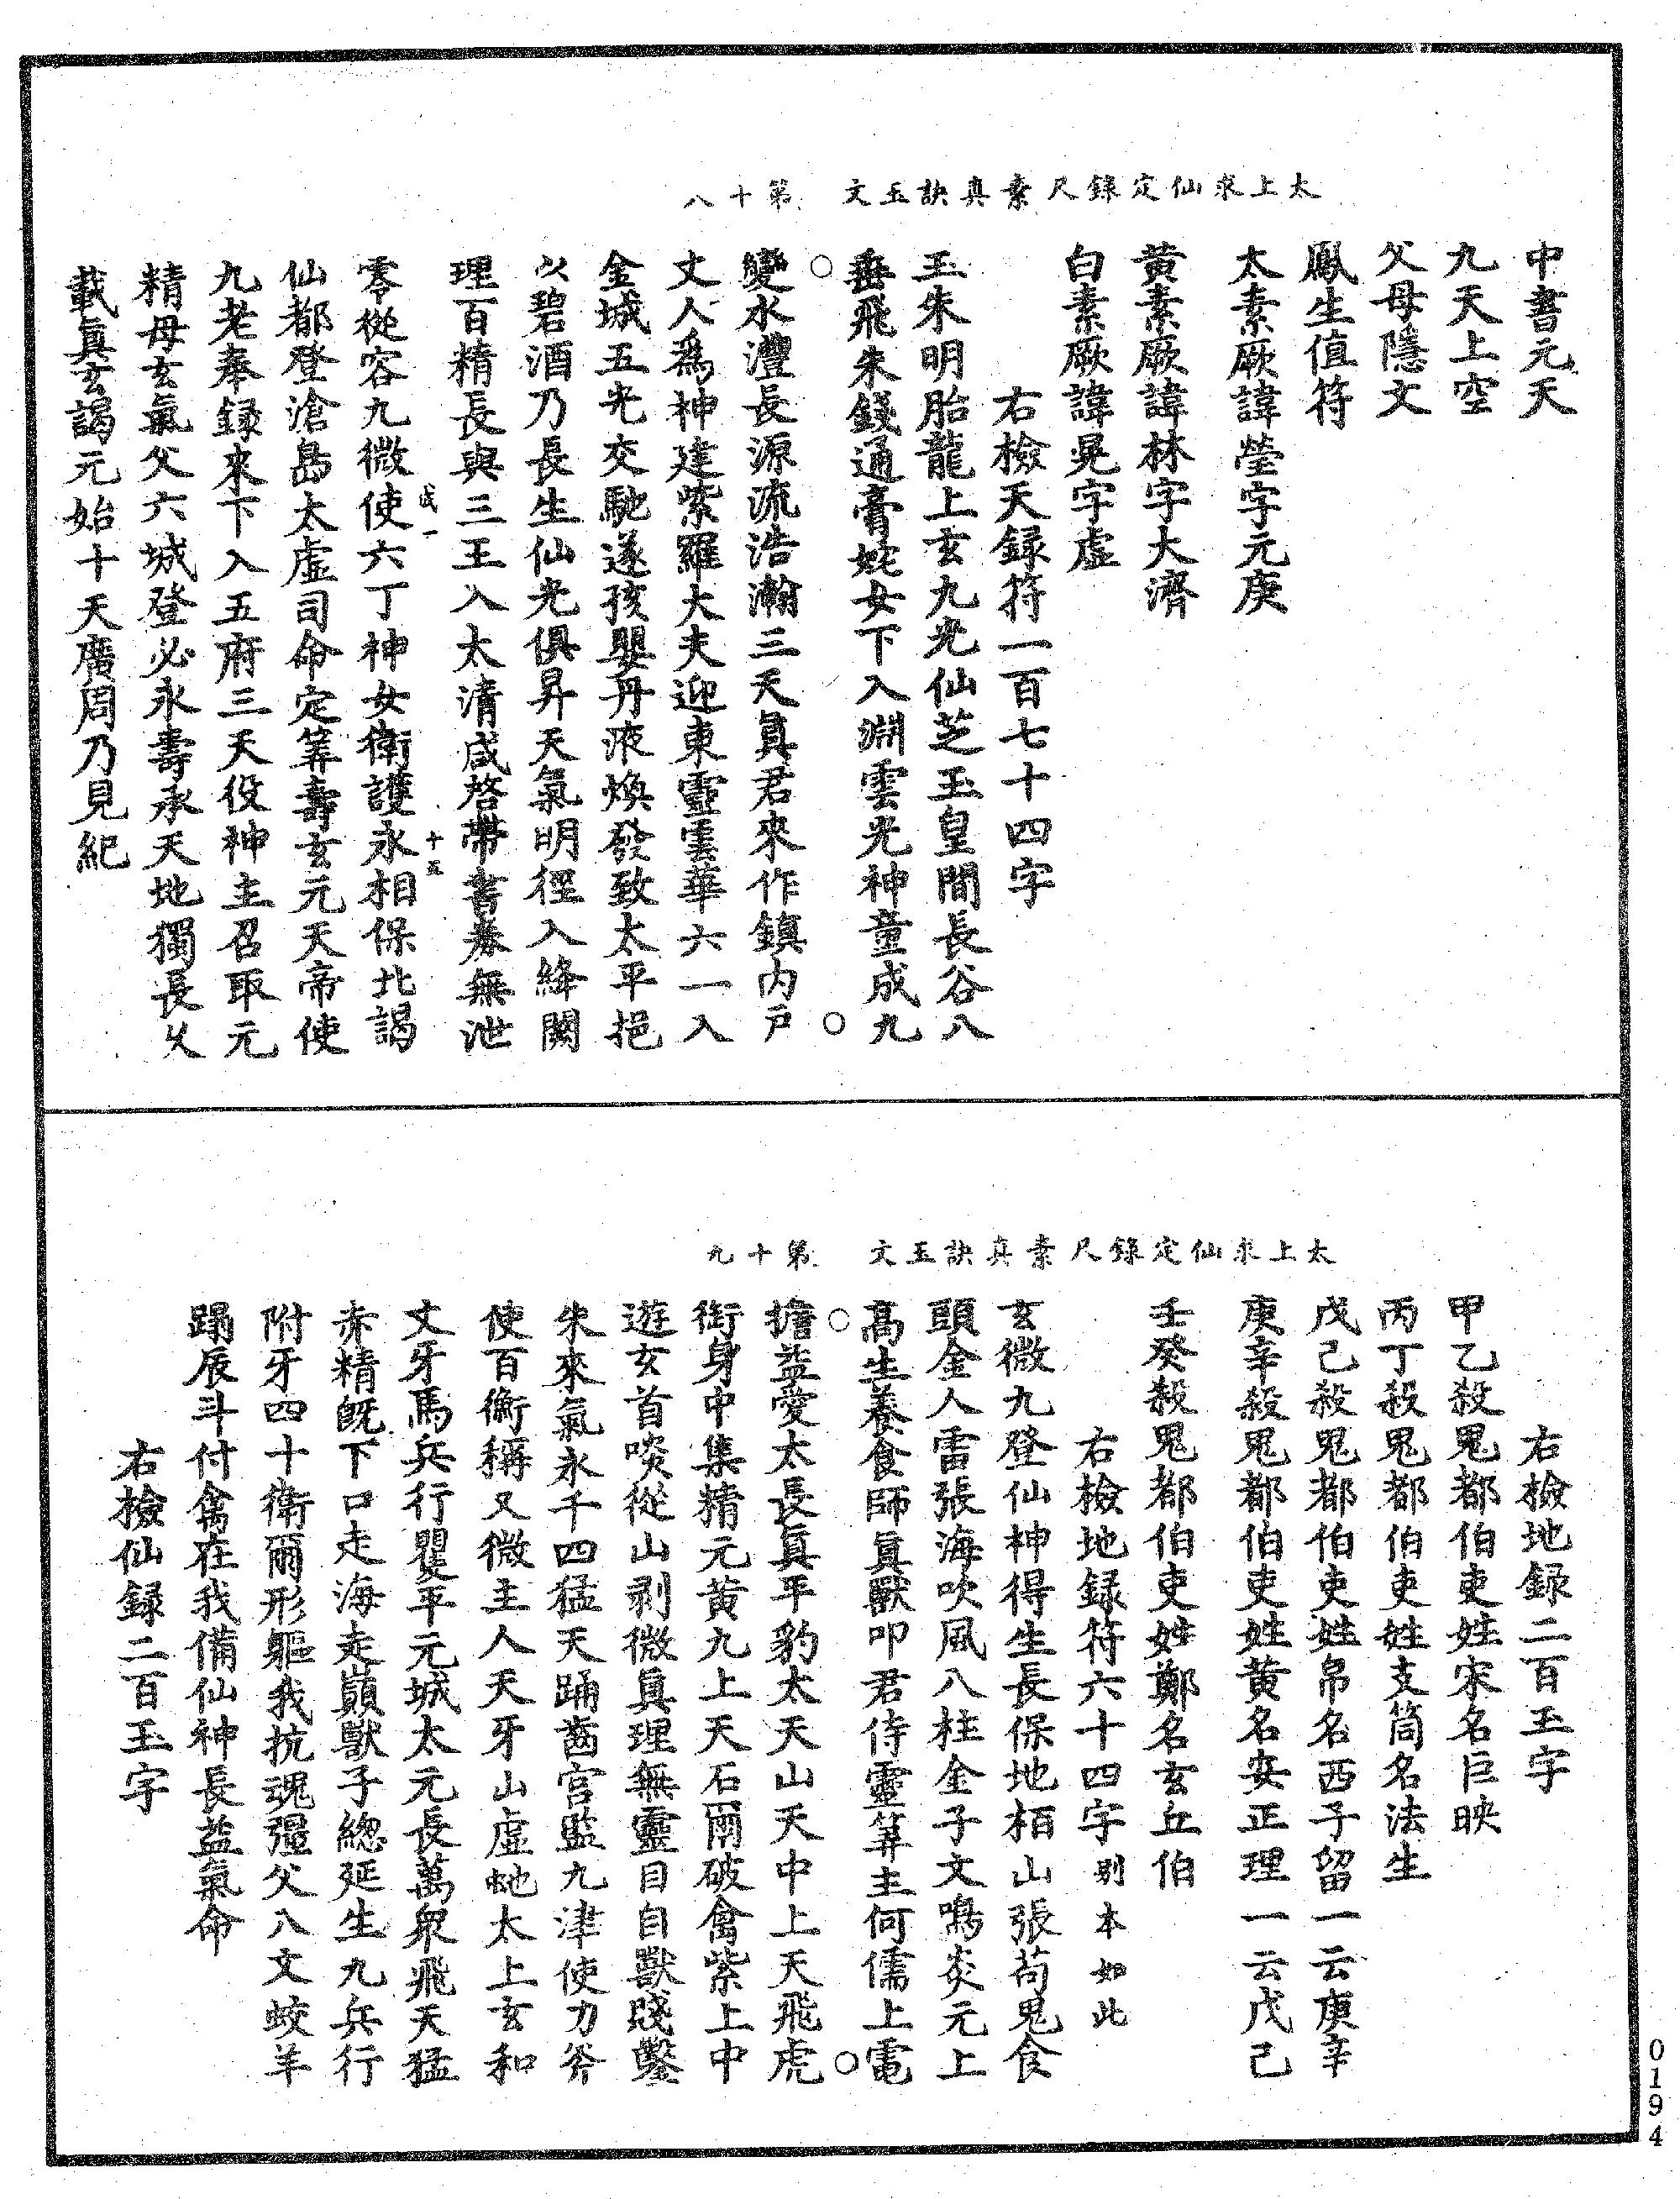 太上求仙定錄尺素真訣玉文　第十八
中書元天
九天上空
父母隱文
鳳生值符
太素厥諱瑩字元庚
黃素厥諱林字大濟
白素厥諱晃字虛
右檢天録符一百七十四字
玉朱明胎龍上玄九光仙芝玉皇間長谷八
垂飛朱錢通膏姹女下入淵雲光神童成九
變水灃長源流浩瀚三天真君來作鎮内戶
丈人為神建紫羅大夫迎東靈雲華六一入
金城五光交馳遂孩嬰丹液煥發致太平挹
以碧酒乃長生仙光俱昇天氣明徑入絳闕
理百精長與三王入太清咸啓帶書券無泄
零從容九微使六丁神女衛護永相保北謁
仙都登滄島太虛司命定筭壽玄元天帝使
九老奉録來下入五府三天役神主召取元
精母玄氣父六城登必永壽承天地獨長久
載真玄謁元始十天廣周乃見紀
一
十五
太上求仙定錄尺素真訣玉文　第十九
右檢地録二百玉字
甲乙殺鬼都伯吏姓宋名巨映
丙丁殺鬼都伯吏姓支筒名法生
戊己殺鬼都伯吏姓帛名西子留一云庚辛
庚辛殺鬼都伯吏姓黃名安正理一云戊己
壬癸殺鬼都伯吏姓鄭名玄丘伯
右檢地録符六十四字別本如此
玄微九登仙神得生長保地栢山張苟鬼食
頭金人雷張海吹風八柱金子文鳴炎元上
高生養食師真獸叩君侍靈筭主何儒上電
擔益愛太長真平豹太天山天中上天飛虎
銜身中集精元黃九上天石爾破禽紫上中
遊玄首啖從山剥微真理無靈目自獸踐鑿
朱來氣永千四猛天踊齒宮監九津使力斧
使百衡稱又微主人天牙山虛虵太上玄和
丈牙馬兵行瞿平元城太元長萬衆飛天猛
赤精既下口走海走巔獸子總延生九兵行
附牙四十衛爾形軀我抗魂彊父八文蛟羊
蹋辰斗付禽在我備仙神長益氣命
右檢仙録二百玉字
0194